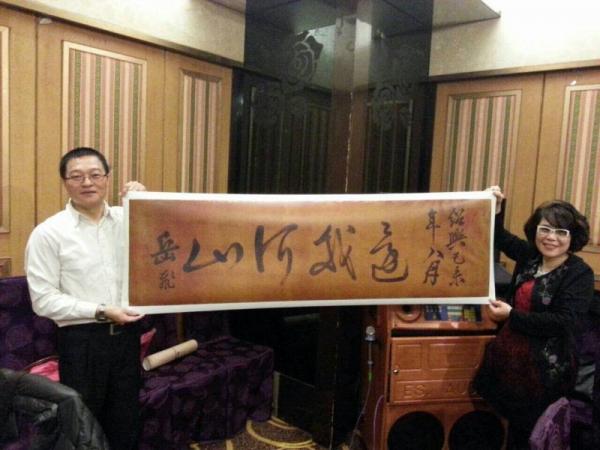 紹興己未
年八月
還我河山
岳飛